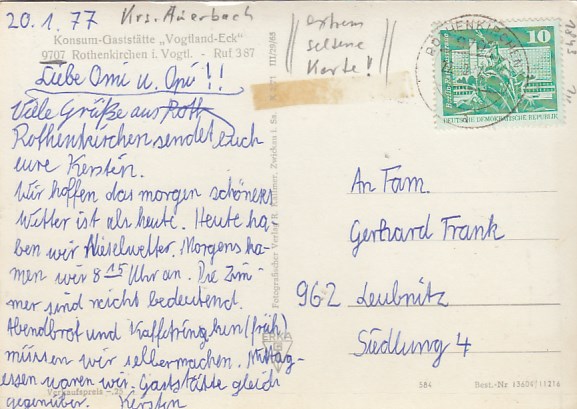 20.1.77 Krs. Auerbach
Konsum-Gaststätte „Vogtland-Eck"
9707 Rothenkirchen i. Vogtl. - Ruf 387
Liebe Omi u. Opi!!
Viele Grüße aus Roth
Rothenkirchen sendet Euch
eure Kerstin.
Wir hoffen das morgen schöneres
Wetter ist als heute. Heute ha-
ben wir Nieselwetter. Morgens ka-
men wir 8 15 Uhr an. Die Zim-
mer sind nicht bedeutend.
Abendbrot und Kaffetrinken (früh)
müssen wir selbermachen. Mittag-
essen waren wir Gaststätte gleich
gegenüber. Kerstin
Verkaufspreis -.25
extrem
seltene
Karte!
III/28/68
Fotografischer Verlag R. Zwickau i. Sa.
ROTHENKIRCHEN
10
DEUTSCHE DEMOKRATISCHE REPUBLIK
An Fam.
Gerhard Frank
962 Leubnitz
Siedlung 4
584 Best.-Nr 13609/11216